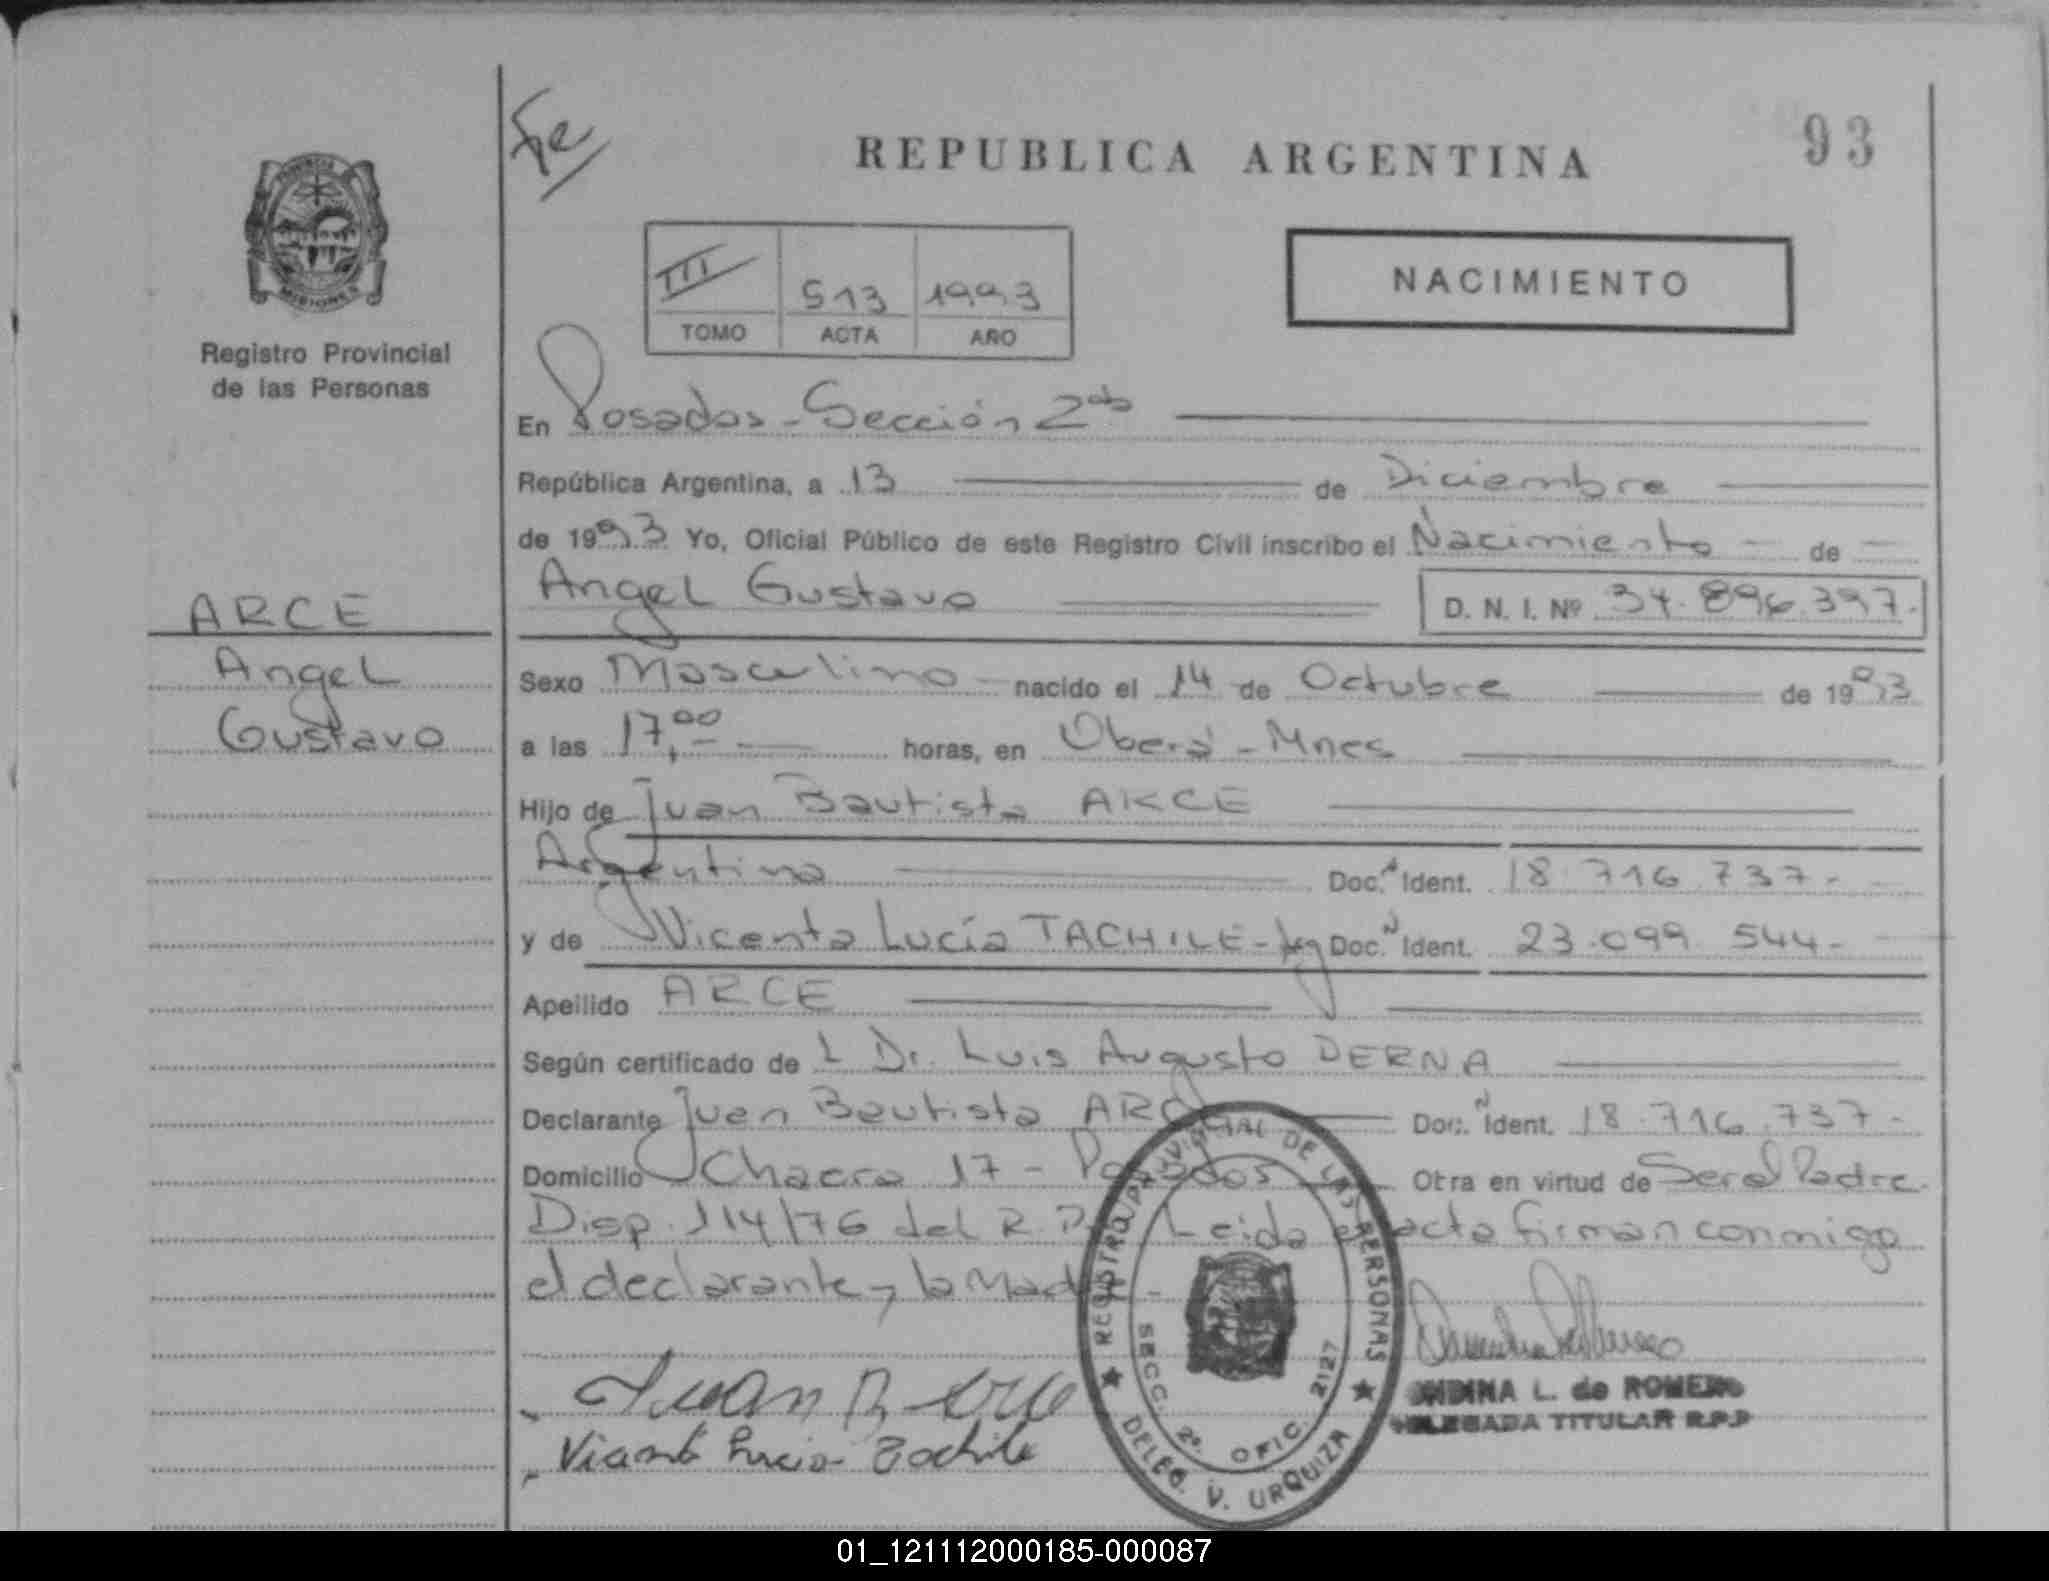 Fe
REPUBLICA ARGENTINA
93
PROVINCIA
MISIONES
Registro Provincial
de las Personas
III 513 1993
TOMO ACTA AÑO
NACIMIENTO
En Posadas - Sección 2da
República Argentina, a 13 de Diciembre
de 1993 Yo, Oficial Público de este Registro Civil inscribo el Nacimiento - de -
ARCE
Angel Gustavo D. N. I. Nº 34.896.397.
Angel
Sexo Masculino - nacido el 14 de Octubre de 1993
Gustavo
a las 17,00 horas, en Oberá - Mnes
Hijo de Juan Bautista ARCE
Argentina Doc. Ident. 18.716.737-
y de Vicenta Lucía TACHILE - Doc. N Ident. 23.099.544-
Apellido ARCE
Según certificado de L Dr. Luis Augusto DERNA
Declarante Juan Bautista ARCE Doc. N Ident. 18.716.737-
Domicilio Chacra 17 - Posadas Otra en virtud de Ser el Padre.
Disp. 114/76 del R. Leida el acta firman conmigo
el declarante y la Madre -
Juan B. Arce
Vicenta Lucia Tachile
REGISTRO PROVINCIAL DE LAS PERSONAS
SECC. 2º. OFIC. 2127
DELEG. V. URQUIZA
ONDINA L. de ROMERO
DELEGADA TITULAR R.P.P
01_121112000185-000087